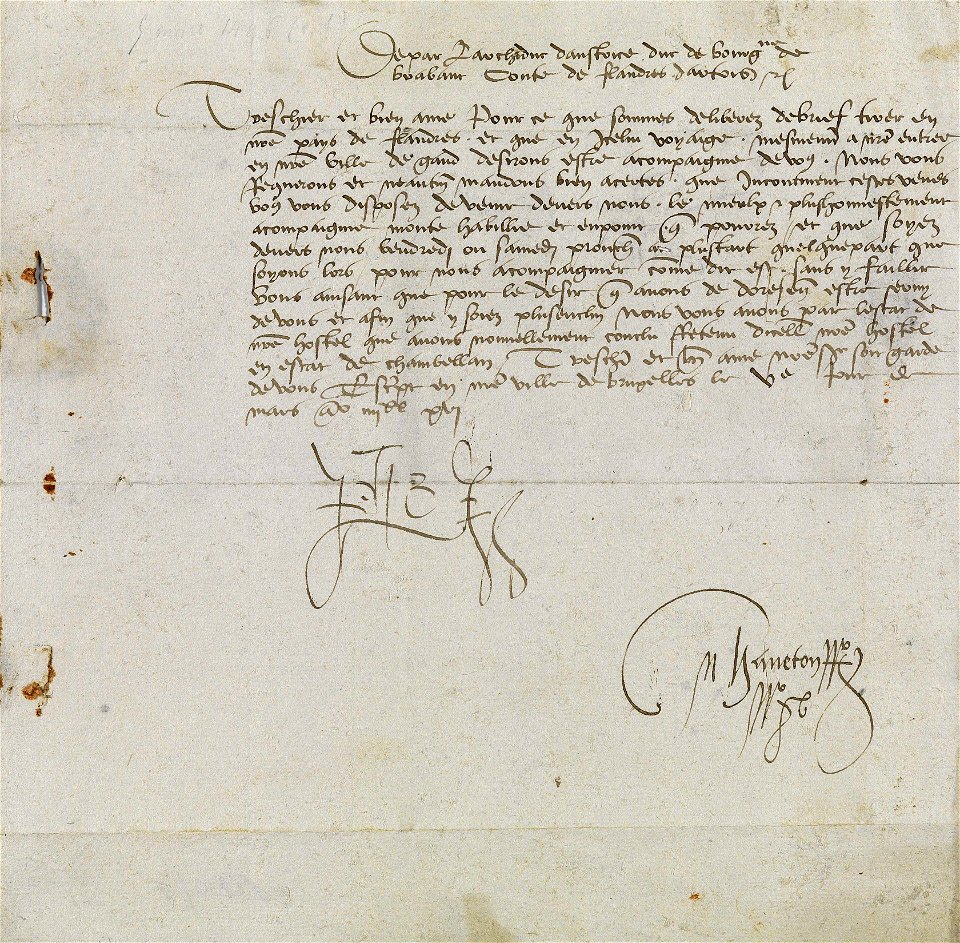 De par Larchiduc daustrice duc de bourgne de
brabant Conte de flandres dartois &c
Treschier et bien ame Pour ce que sommes deliberez debrief tirer en
nre pays de flandres . et que en Icelui voyaige . mesmemt a nre entree
en nre ville de gand desirons estre acompaignie de vo9 . Nous vous
Requerons et neantm mandons bien acertes . que Incontinent cestes veues
vo9 vous disposez de venir devers nous . le mieulx & plushonnestement
acompaignie monte habillie et enpoint q pourrez et que soyez
devers nous vendredi ou samedi prouchn au plustart quelquepart que
soyons lors pour nous acompaigner come dit est . sans y faillir
Vous avisant que pour le desir q avons de doresenv estre servy
de vous et afin que y soiez plusenclin Nous vous avons par lestat de
nre hostel que avons nouvellement conclu Retenu dicellui nre hostel
en estat de chambellan Treschr et bn ame nre sr soit garde
de vous Escript en nre ville de bruxelles le ve Jour de
mars ao iiijxx xvj
Phe
Haneton